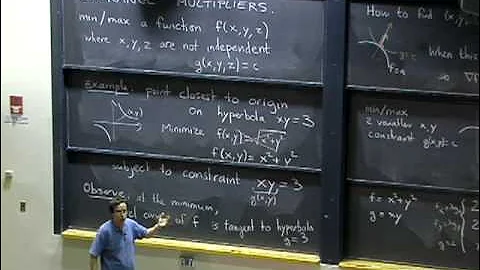 MULTIPLIERS.
min/max a function f(x,y,z)
where x,y,z are not independent
g(x,y,z)=c
Example: point closest to origin
on hyperbola xy=3
(x,y)
Minimize f(x,y)=√x²+y²
f(x,y)=x²+y²
subject to constraint xy=3
g(x,y)
Observe: at the minimum,
curve of f is tangent to hyperbola
g=3
How to find (x,y)
g=c
f=a
When this
so
min/max
2 variables x,y
constraint g(x,y)=c
f=x²+y²
g=xy